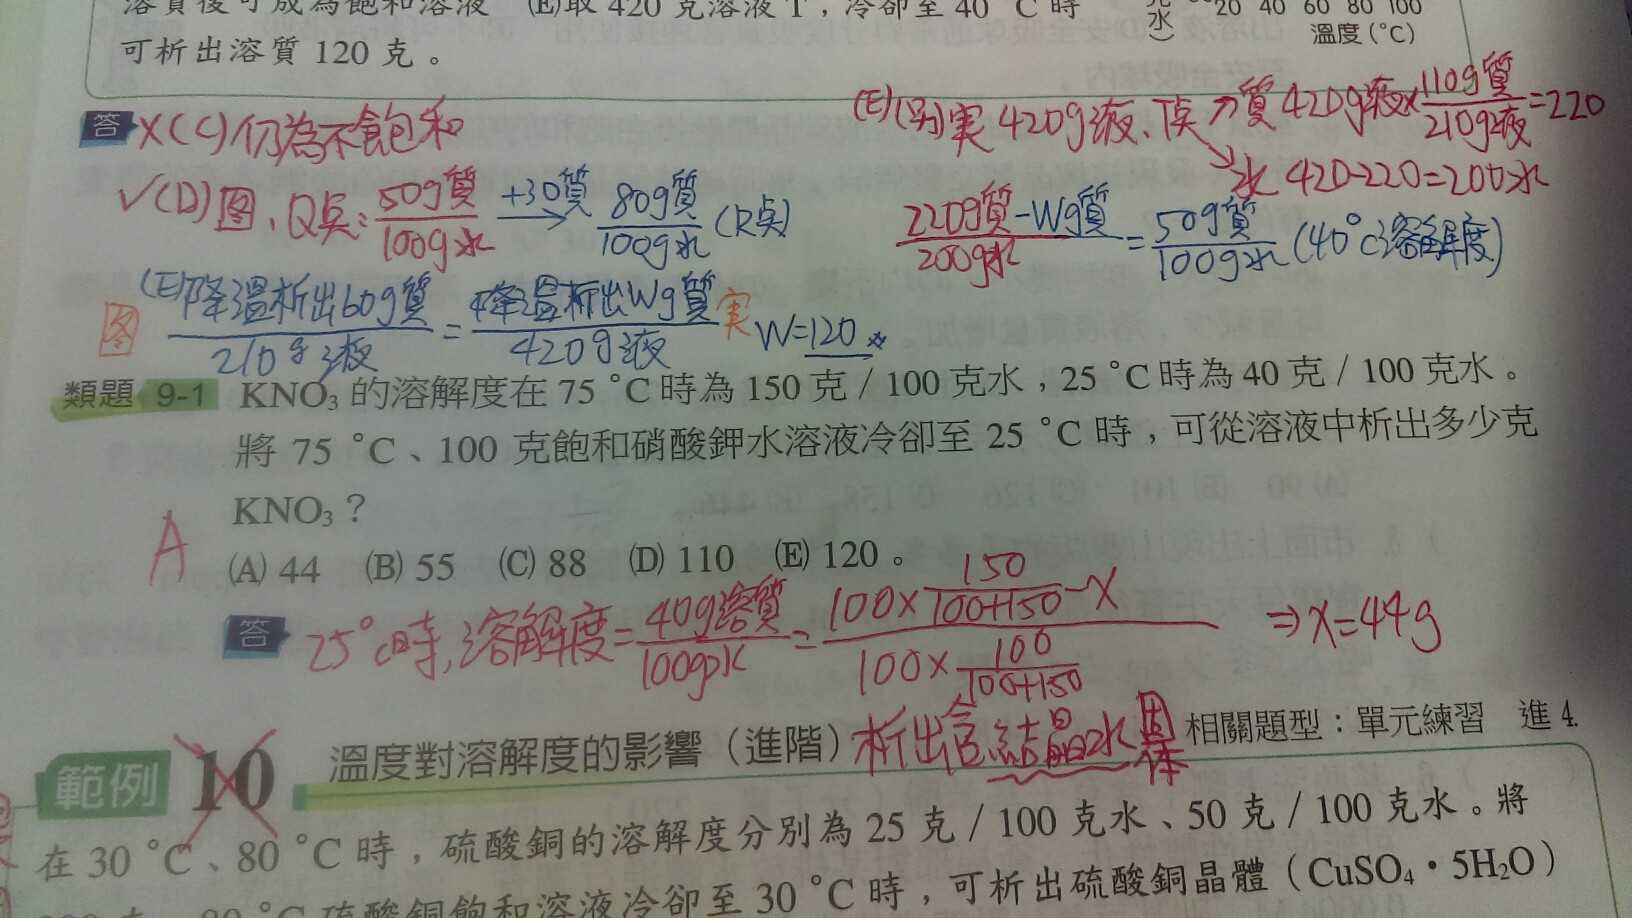 溶質後可成為飽和溶液 (E)取 420 克溶液 T,冷卻至 40 °C 時
可析出溶質 120 克。
水)
20 40 60 80 100
溫度(°C)
答 ×(C)仍為不飽和
✓(D)圖、Q點:50g質/100g水 +30質→ 80g質/100g水 (R点)
(E)(另)实 420g液、T点 ↗質 420g液×110g質/210g液=220
↘水 420-220=200水
220g質-Wg質/200g水=50g質/100g水(40°C溶解度)
图 (E)降溫析出60g質/210g液=降溫析出Wg質/420g液 实 W=120
類題 9-1 KNO₃ 的溶解度在 75 °C 時為 150 克/100 克水,25 °C 時為 40 克/100 克水。
將 75 °C、100 克飽和硝酸鉀水溶液冷卻至 25 °C 時,可從溶液中析出多少克
KNO₃?
A (A) 44 (B) 55 (C) 88 (D) 110 (E) 120。
答 25°C時,溶解度=40g溶質/100g水=100×150/100+150-X/100×100/100+150 ⇒X=44g
範例 10 溫度對溶解度的影響(進階)析出含結晶水固体 相關題型:單元練習 進 4.
在 30 °C、80 °C 時,硫酸銅的溶解度分別為 25 克/100 克水、50 克/100 克水。將
80 °C 硫酸銅飽和溶液冷卻至 30 °C 時,可析出硫酸銅晶體(CuSO₄・5H₂O)